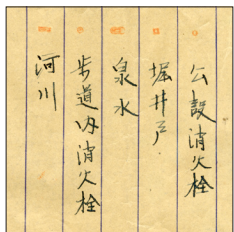 公設消火栓
堀井戸
泉水
歩道内消火栓
河川